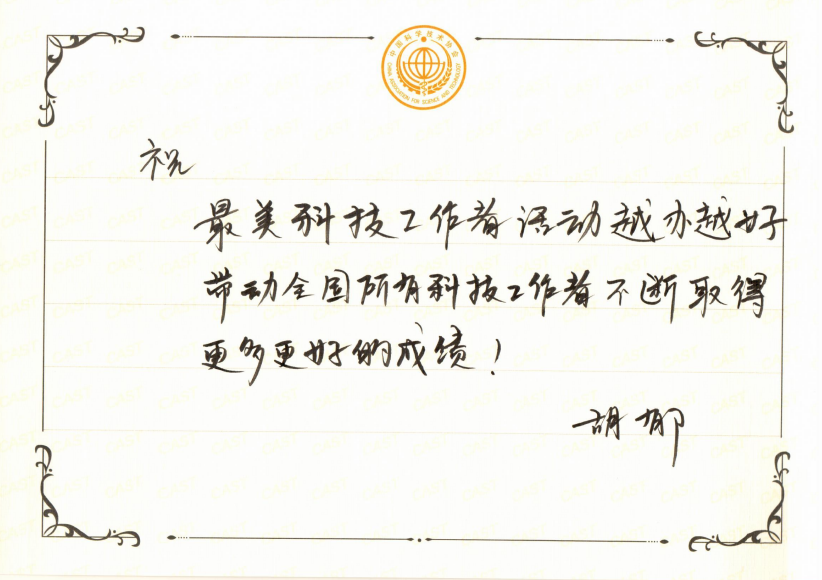 中国科学技术协会
CHINA ASSOCIATION FOR SCIENCE AND TECHNOLOGY
祝
最美科技工作者活动越办越好
带动全国所有科技工作者不断取得
更多更好的成绩！
胡郁